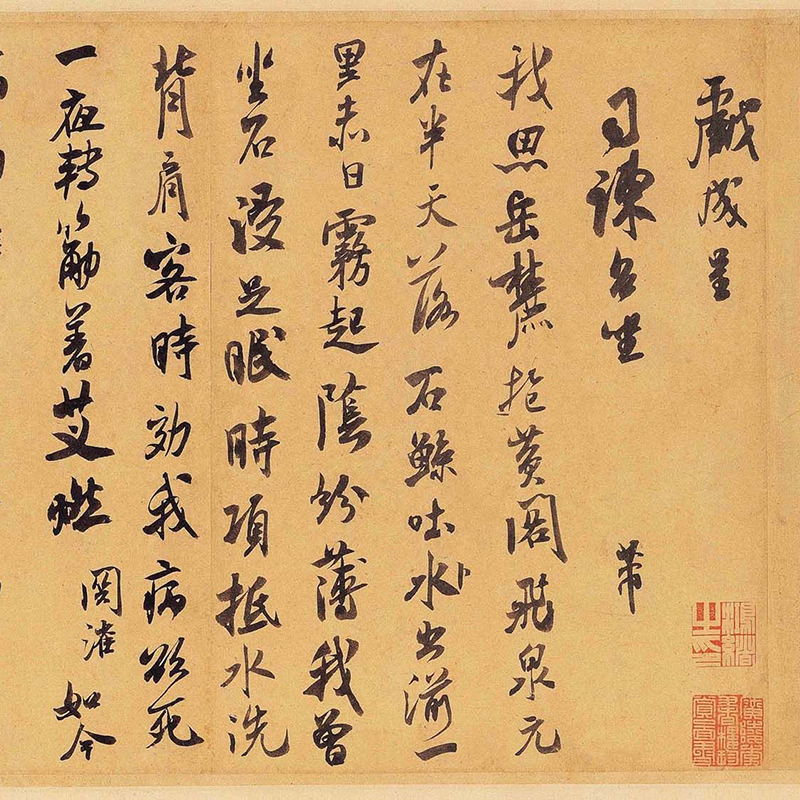 戲成呈
司諫台坐
芾
我思岳麓抱黄閣飛泉元
在半天落石鯨吐水出湔一
里赤日霧起陰紛薄我曾
坐石浸足眠時項抵水洗
背肩客時効我病欲死
一夜轉筋着艾燃 關 如今